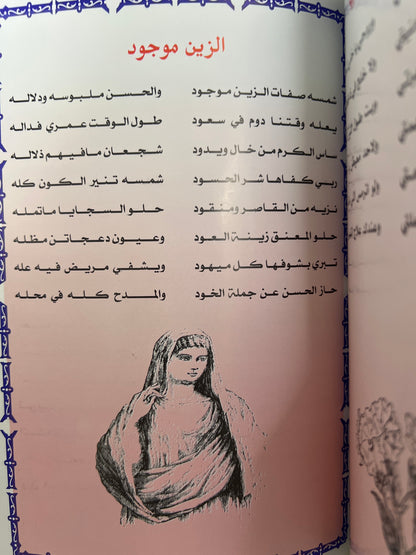 الزين موجود
شمسه صفات الزين موجود والحسن ملبوسه ودلاله
يعله وقتنا دوم في سعود طول الوقت عمري فداله
ساس الكرم من خال ويدود شجعان مافيهم ذلاله
ربي كفاها شر الحسود شمسه تنير الكون كله
نزيه من القاصر ومنقود حلو السجايا ماتمله
حلو المعنق زينة العود وعيون دعجاتن مظله
تبري بشوفها كل ميهود ويشفي مريض فيه عله
حاز الحسن عن جملة الخود والمدح كله في محله